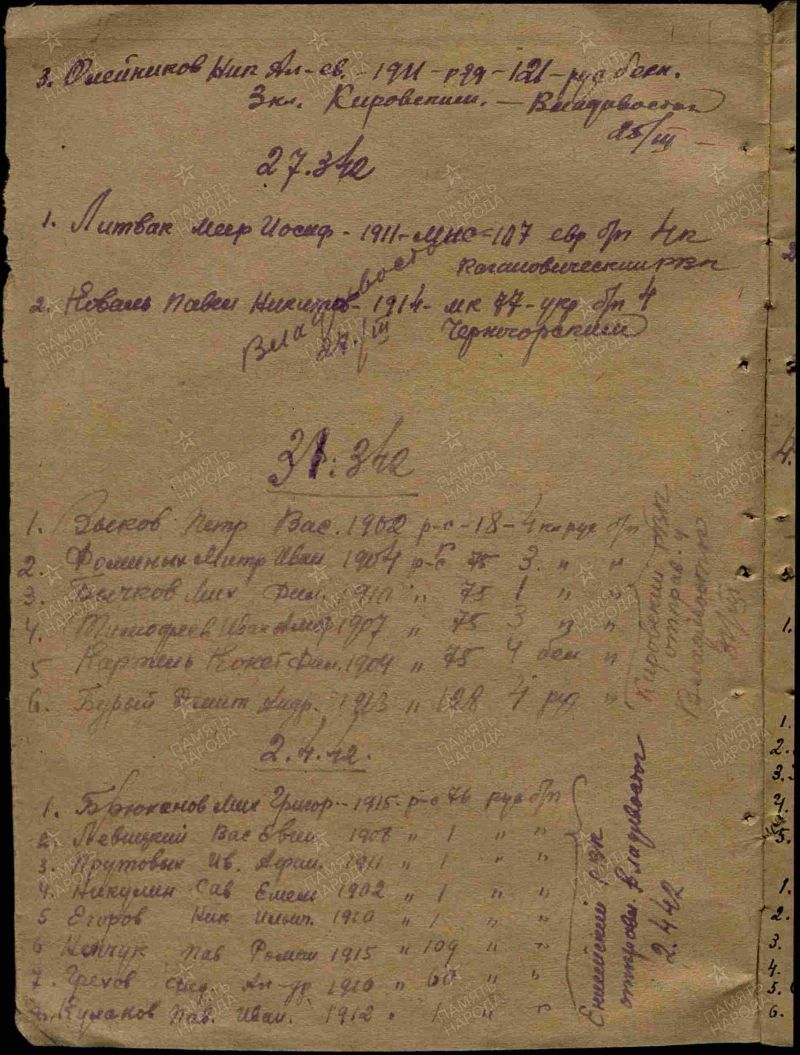 3. Олейников Ник Ал-ев. - 1911 - ряд - 121 - рус беcп.
3 кл. Кировским. - Владивосток
25/III -
27.3 42
1. Литвак Меер Иосиф - 1911 - МНС = 107 евр б/п 4 к
Кагановический РВК
2. Коваль Павел Никитов - 1914 - мк 77 - укр б/п 4
Черногорским
Владивосток
27/III
31.3 42
1. Зыков Петр Вас. 1902 р-с - 18 - 4 кл рус б/п
2. Фоминых Митр Иван 1904 р-с 75 3 " "
3. Бычков Мих Фил. 1910 " 75 1 " "
4. Тимофеев Иван 1907 " 75 3 " "
5 Фил. 1904 " 75 4 бел "
6. Бурый Дмит Андр. 1913 " 128 4 рус "
Кировский РВК
отправ. в
Владивосток
31/III
2.4.42.
1. Брюханов Мих Григор. - 1915. р-с 76 рус б/п
2. Левицкий Вас 1908 " 1 " "
3. Прутовых Ив. Афан. 1911 " 1 " "
4. Никулин Сав Емел 1902 " 1 " "
5 Егоров Ник Ильич. 1910 " 1 " "
6 Пав Роман 1915 " 109 " "
7. Грехов Ал-др 1910 " 60 " "
8. Кулаков Пав. Иван. 1912 " 1 " "
РВК
отправ. Владивосток
2.4 42
ПАМЯТЬ НАРОДА